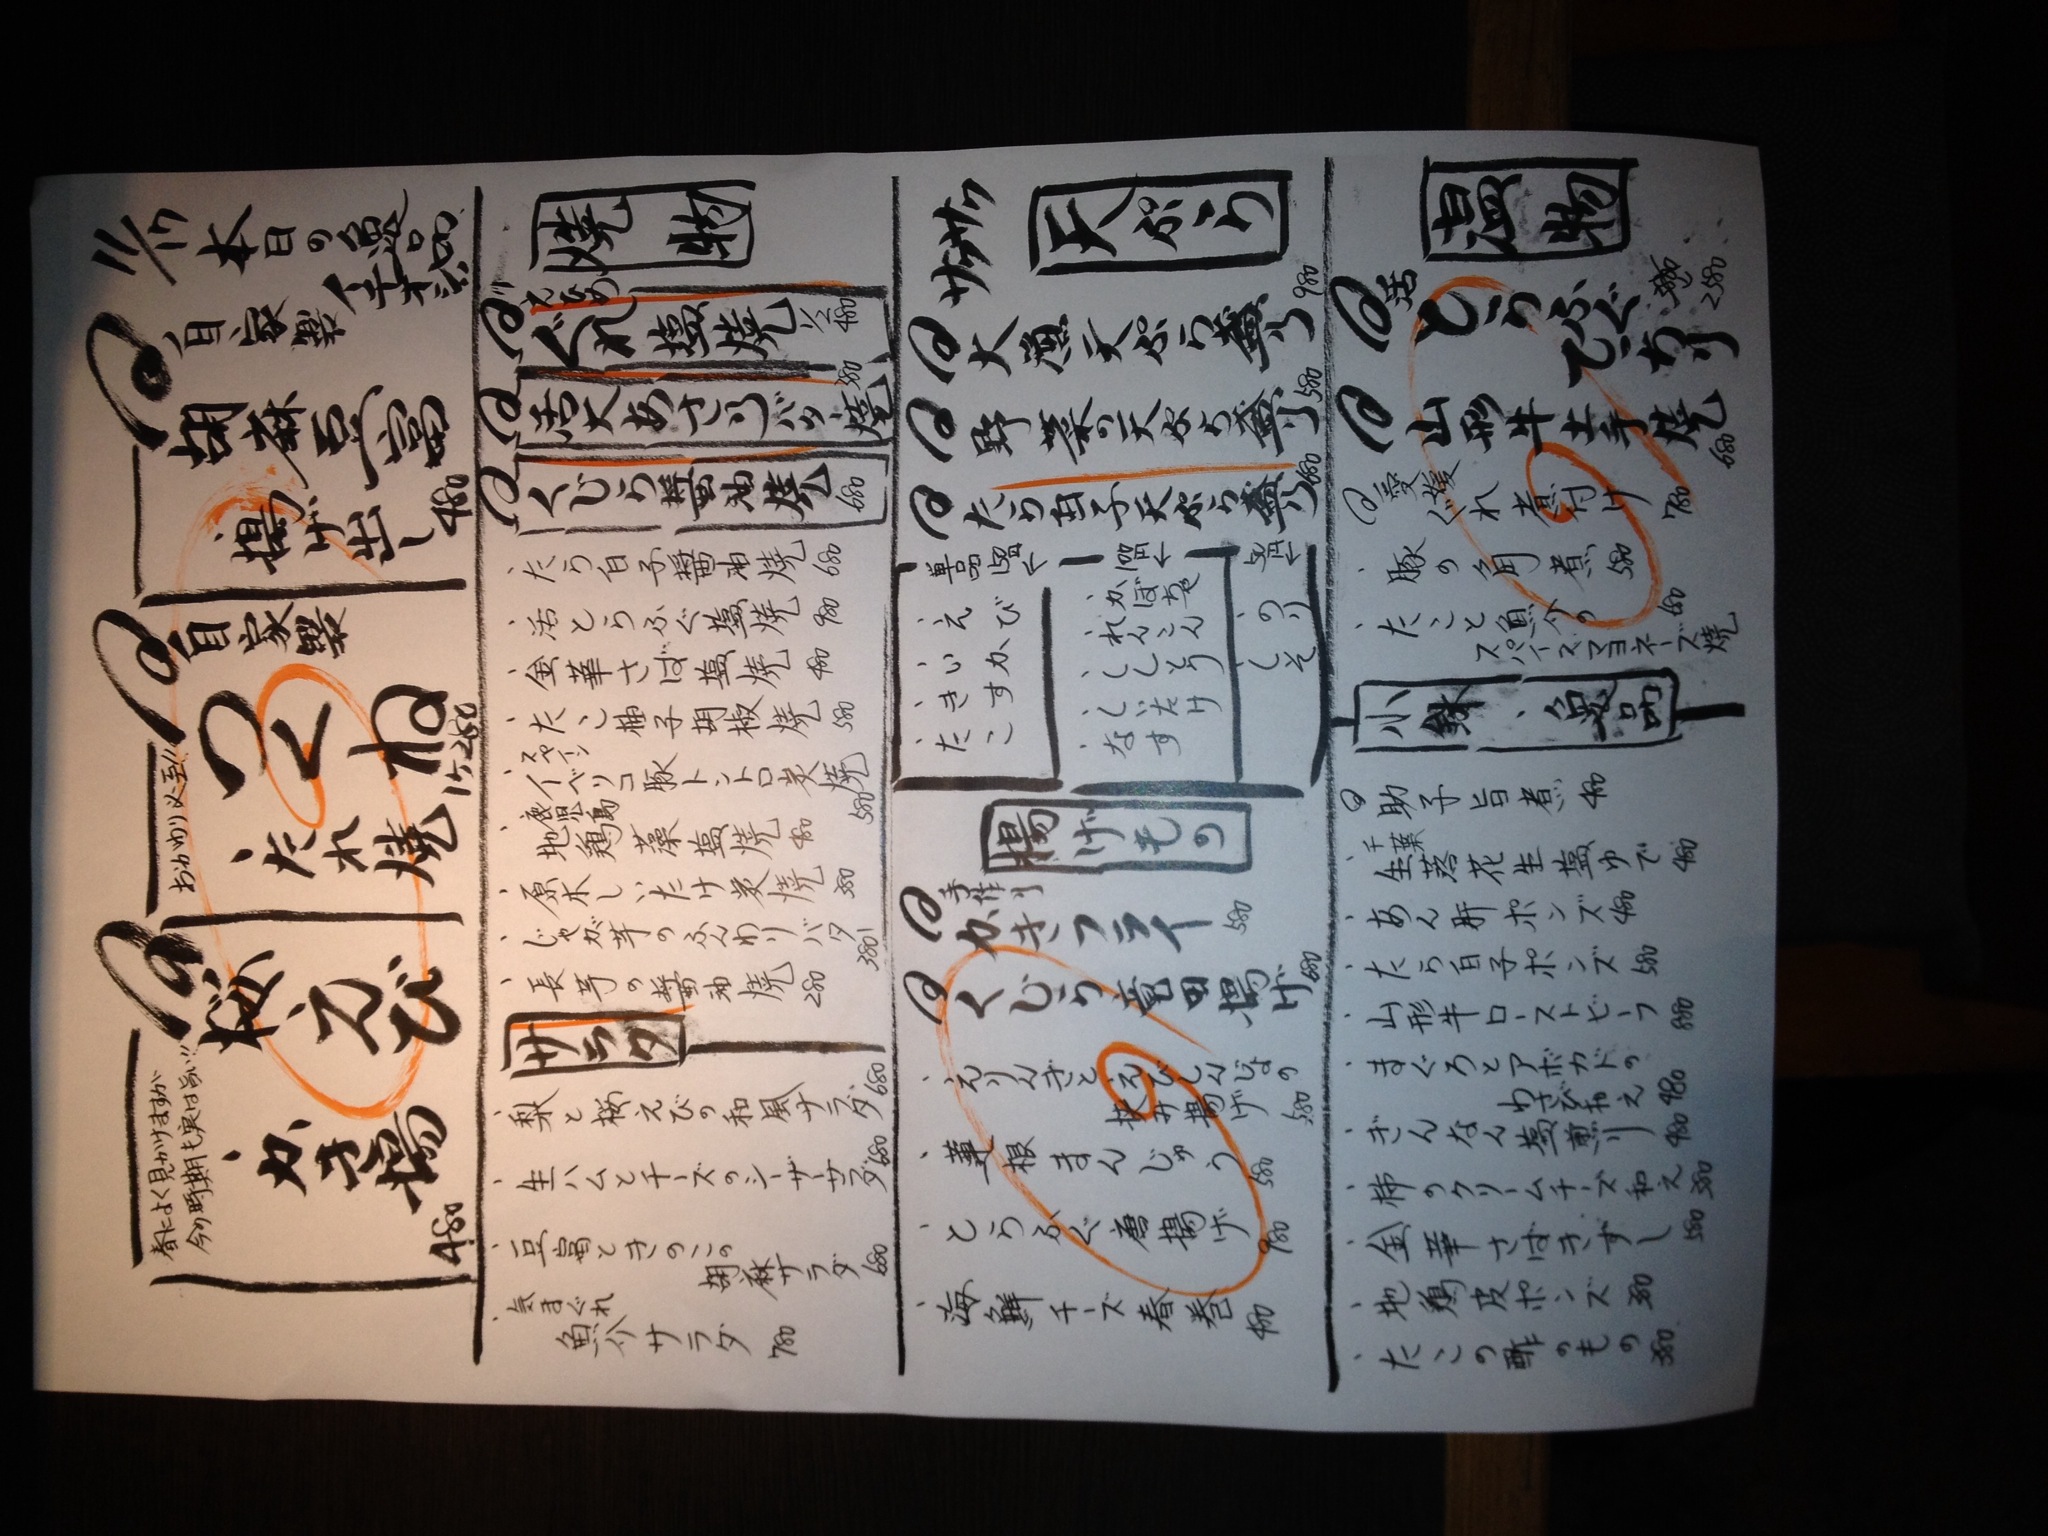 11/17 本日の逸品
自家製
胡麻豆富
揚げ出し
480
自家製
つくね
たれ焼
1ヶ280
おかわり必至!!
桜えび
かき揚
480
春によく見かけますが
今の時期も実は旨い!!
焼物
ぐれ塩焼 1/2 480
活大あさりバター焼 380
くじら醤油焼 680
・たら白子醤油焼 680
・活とらふぐ塩焼 980
・金華さば塩焼 480
・たこ柚子胡椒焼 580
スペイン
・イベリコ豚トントロ炭焼 580
鹿児島
・地鶏藻塩焼 480
・原木しいたけ炭焼 380
・じゃが芋のふんわりバター 380
・長芋の醤油焼 280
サラダ
・梨と桜えびの和風サラダ 680
・生ハムとチーズのシーザーサラダ 680
・豆富ときのこの
胡麻サラダ 680
・気まぐれ
魚介サラダ 780
サクサク
天ぷら
大漁天ぷら盛り 980
野菜の天ぷら盛り 580
たら白子天ぷら盛り 680
単品 150円
・えび
・いか
・きす
・たこ
100円
・かぼちゃ
・れんこん
・ししとう
・しいたけ
・なす
50円
・のり
・しそ
揚げもの
手作り
かきフライ 580
くじら竜田揚げ 680
・えりんぎとえびしんじょの
挟み揚げ 580
・蓮根まんじゅう 580
・とらふぐ唐揚げ 980
・海鮮チーズ春巻 480
温物
活とらふぐ
てっちり 2580
山形牛土手焼 680
愛媛
ぐれ煮付け 780
・豚の角煮 580
・たこと魚介の
スパイスマヨネーズ焼
小鉢・逸品
助子旨煮 480
千葉
・生落花生塩ゆで 480
・あん肝ポンズ 480
・たら白子ポンズ 580
・山形牛ローストビーフ 880
・まぐろとアボカドの
わさび和え 480
・ぎんなん塩煎り 480
・柿のクリームチーズ和え 380
・金華さばきずし 580
・地鶏皮ポンズ 380
・たこの酢のもの 380